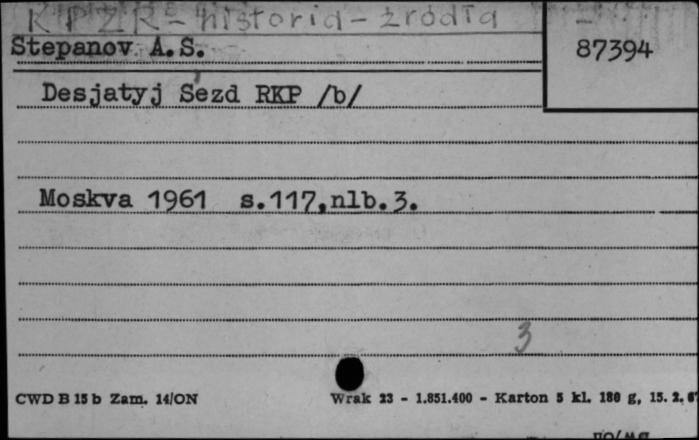 KPZR - historia - źródła
Stepanov A.S.
87394
Desjatyj S'ezd RKP /b/
Moskva 1961 s.117,nlb.3.
3
CWD B 15 b Zam. 14/ON
Wrak 23 - 1.851.400 - Karton 5 kl. 180 g, 15. 2. 6